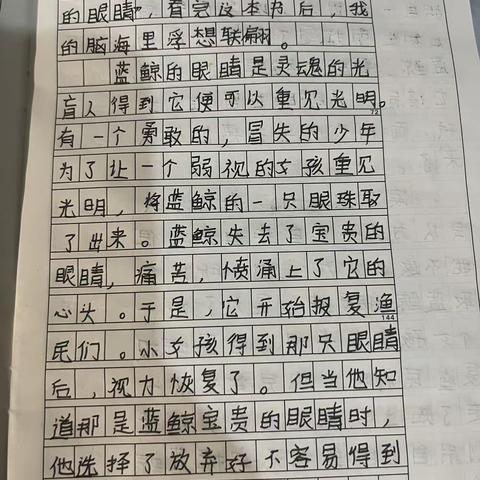 的眼睛，看完这本书后，我
的脑海里浮想联翩。
蓝鲸的眼睛是灵魂的光
盲人得到它便可以重见光明。
72
有一个勇敢的，冒失的少年
为了让一个弱视的女孩重见
光明，将蓝鲸的一只眼珠取
了出来。蓝鲸失去了宝贵的
眼睛，痛苦，愤涌上了它的
心头。于是，它开始报复渔
144
民们。小女孩得到那只眼睛
后，视力恢复了。但当他知
道那是蓝鲸宝贵的眼睛时，
他选择了放弃好不容易得到